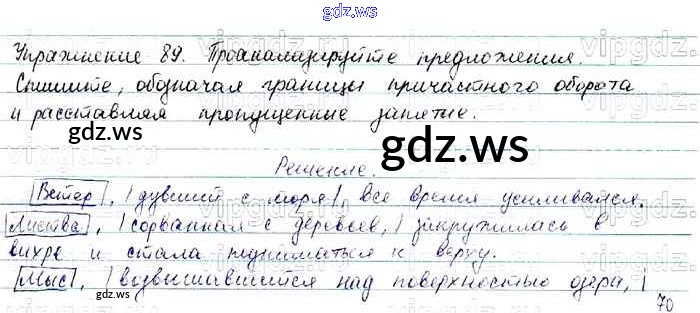 gdz.ws
Упражнение 89. Проанализируйте предложения.
Спишите, обозначая границы причастного оборота
и расставляя пропущенные запятые.
gdz.ws
gdz.ws
Решение.
Ветер, |дувший с моря|, все время усиливался.
Листва, |сорванная с деревьев,| закружилась в
вихре и стала подниматься к верху.
Мыс, |возвышавшийся над поверхностью озера,|
gdz.ws
gdz.ws
70